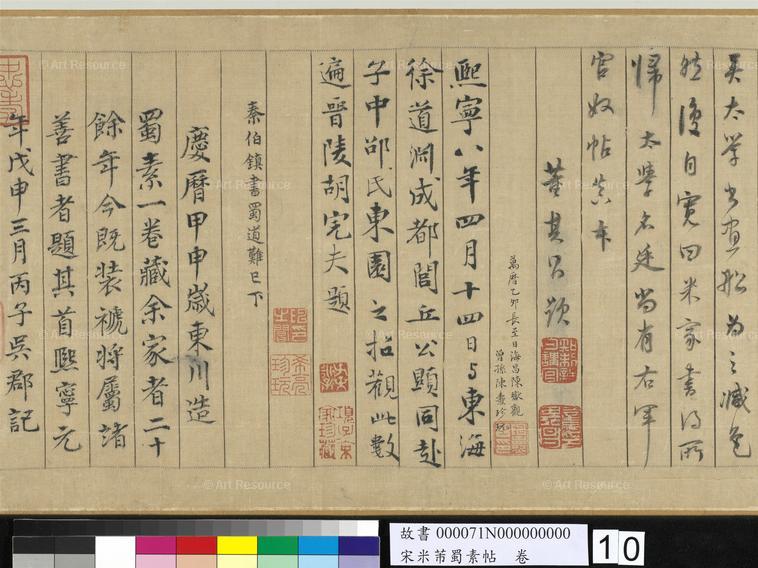 吴太学书画船为之减色
然后自宽曰米家书得所
归太学名廷尚有右军
官奴帖真本
董其昌题
萬曆乙卯長至日海昌陳瓛觀
曾孫陳
熙寧八年四月十四日与東海
徐道淵成都閭丘公顯同赴
子中邵氏東園之招觀此數
遍晉陵胡完夫題
秦伯鎮書蜀道難已下
慶曆甲申歲東川造
蜀素一卷藏余家者二十
餘年今既装褫将屬諸
善書者題其首熙寧元
年戊申三月丙子吳郡記
© Art Resource
© Art Resource
© Art Resource
© Art Resource
© Art Resource
© Art Resource
© Art Resource
© Art Resource
故書 000071N000000000
宋米芾蜀素帖 卷
10